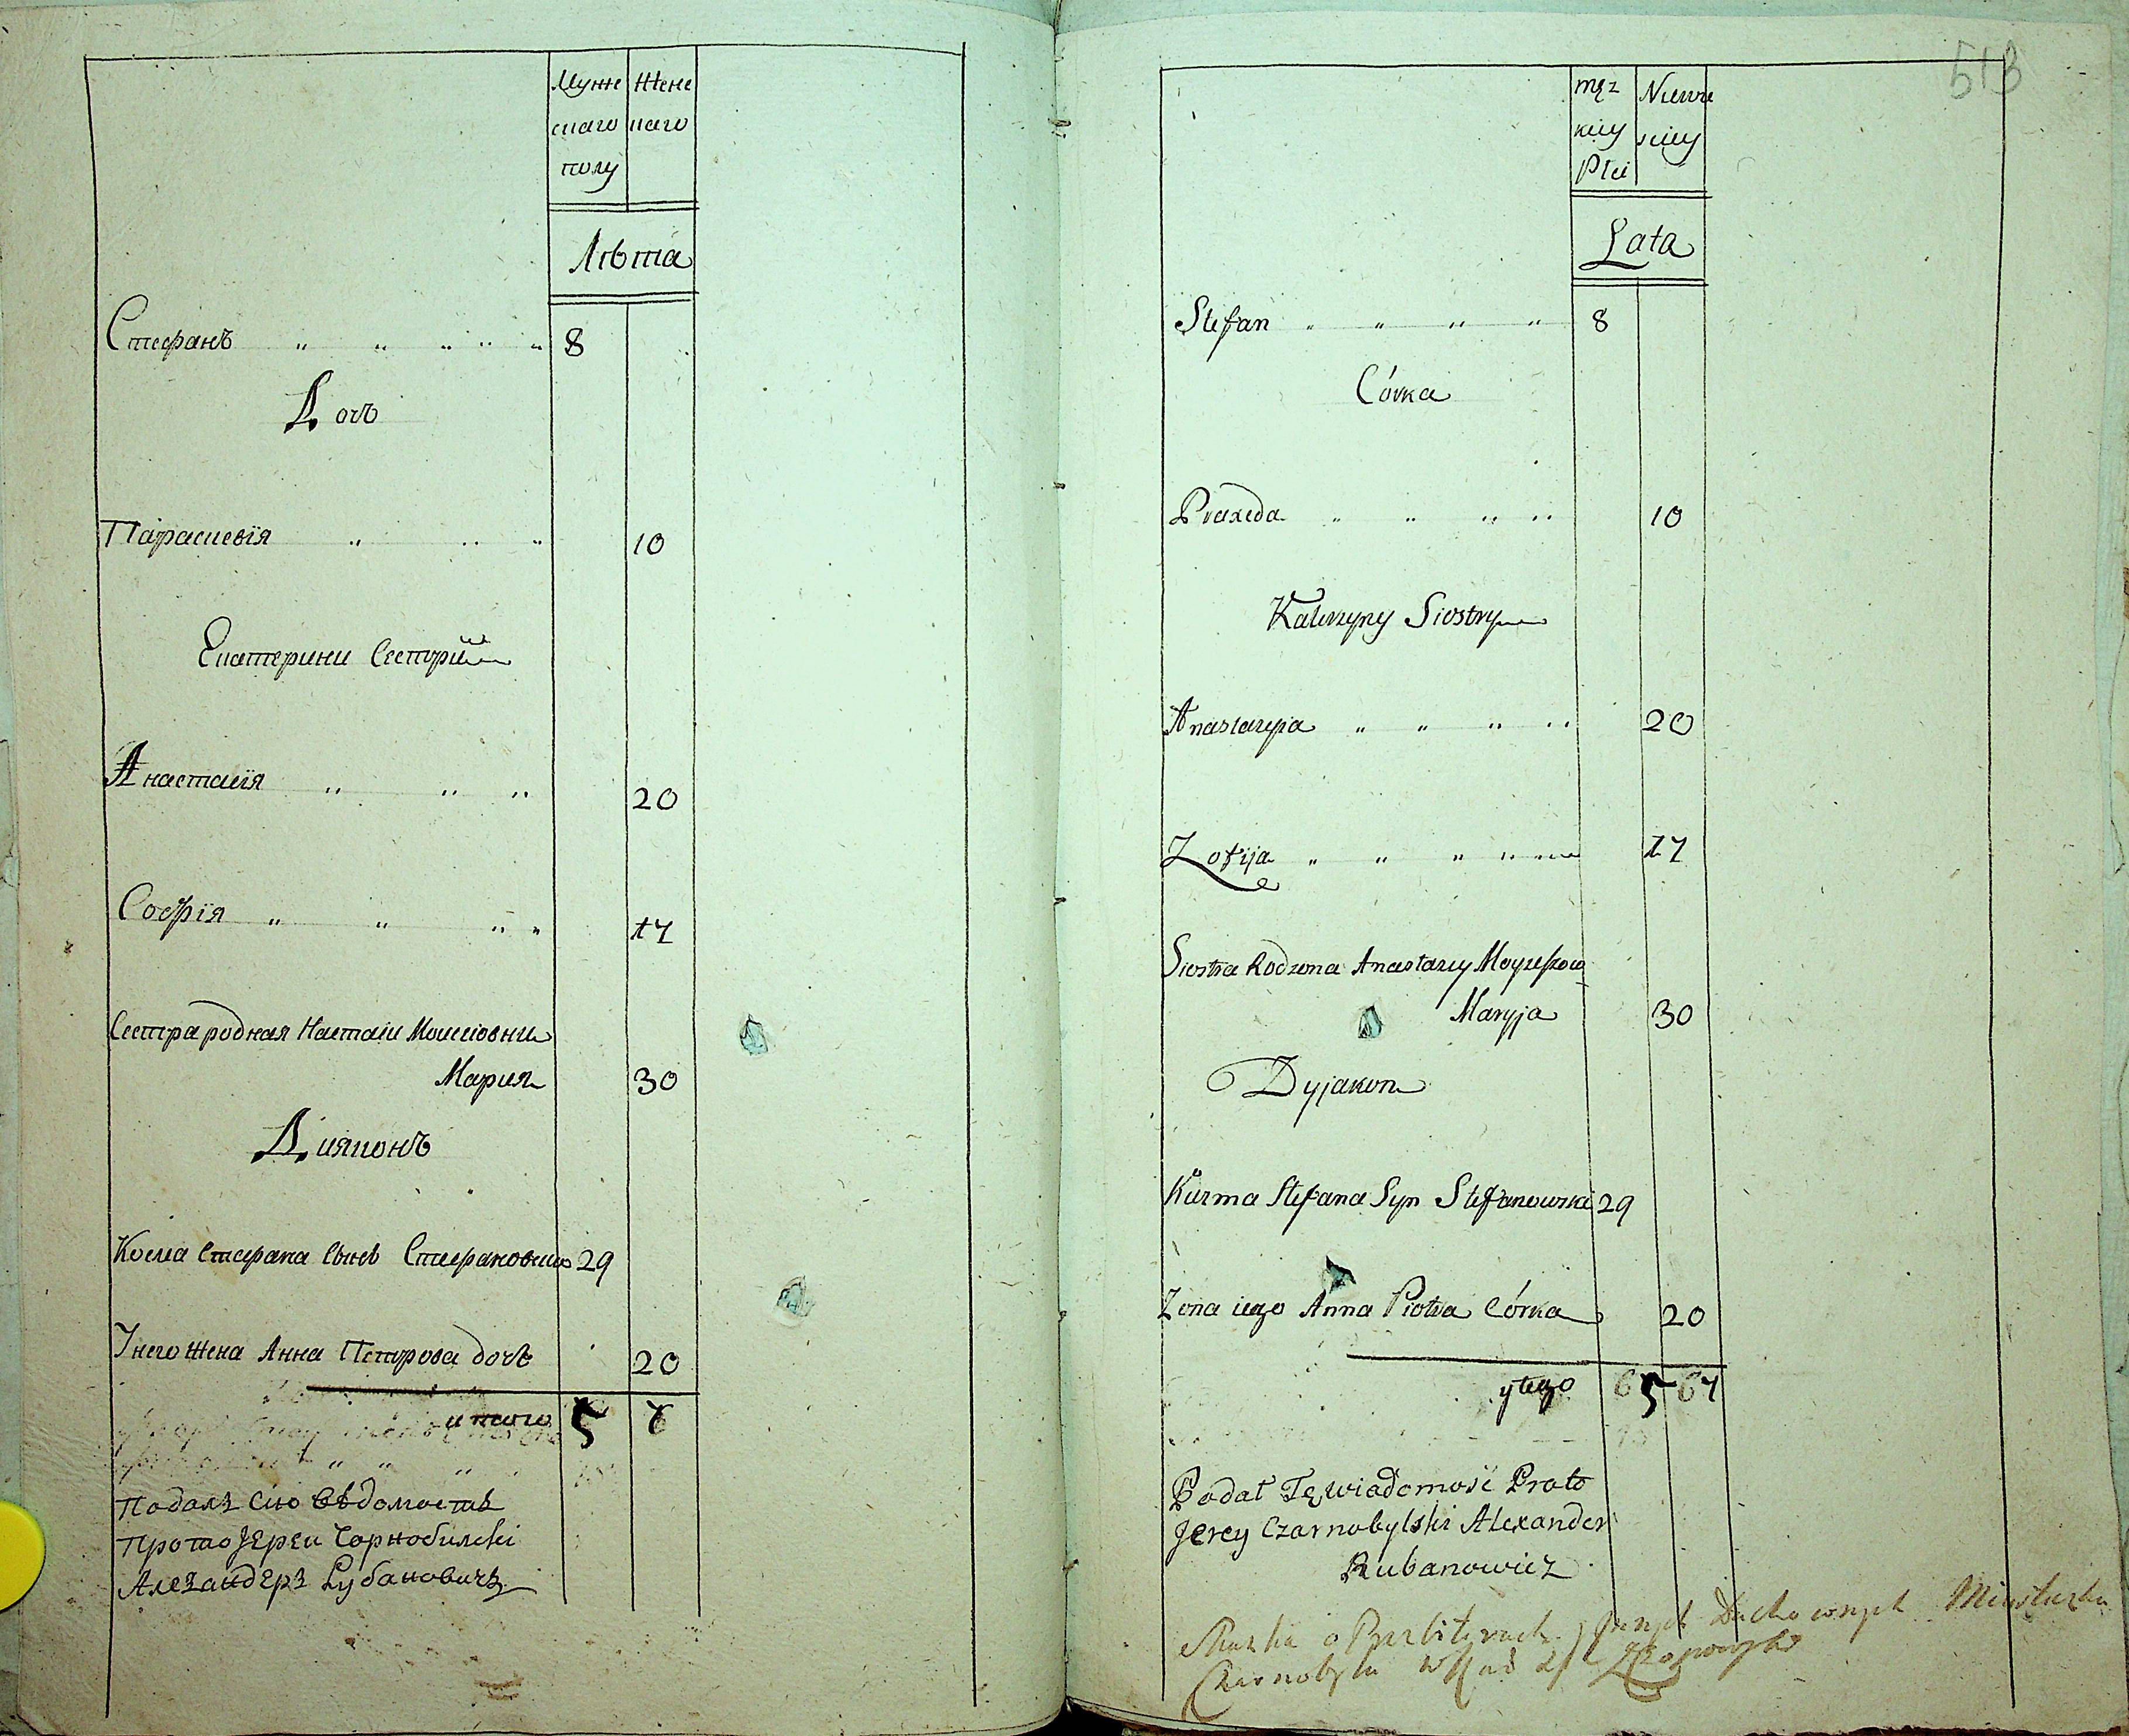 Мужe Жене
скаго скаго
полу
Лѣта
Стефанъ " " " " " 8
Дочъ
Параскевїя " " " 10
Екатерини Сестри
Анастасїя " " " 20
Софїя " " " " 17
Сестра родная Настасіи Моисіовни
Мария 30
Дияконъ
Косма Стефана Сынъ Стефановский 29
У него жена Анна Петрова дочь 20
итого 5
Подалъ сию вѣдомость
ПротоЈерей Чорнобилскі
Александеръ Рубановичъ
513
męz Niewie
kiey sciey
Płci
Lata
Stefan " " " " 8
Córka
Praxeda " " " " 10
Katerzyny Siostry
Anastazyja " " " " 20
Zofija " " " " 17
Siostra Rodzona Anastazyy Moyzeszow
Maryja 30
Dyjakon
Kuzma Stefana Syn Stefanowski 29
Zona iego Anna Piotra Córka 20
ytego
Podał Tę wiadomość Proto
Jerey Czarnobylski Alexander
Rubanowicz
o Prezbiterach y Duchownych Miasteczka
Czarnobyla